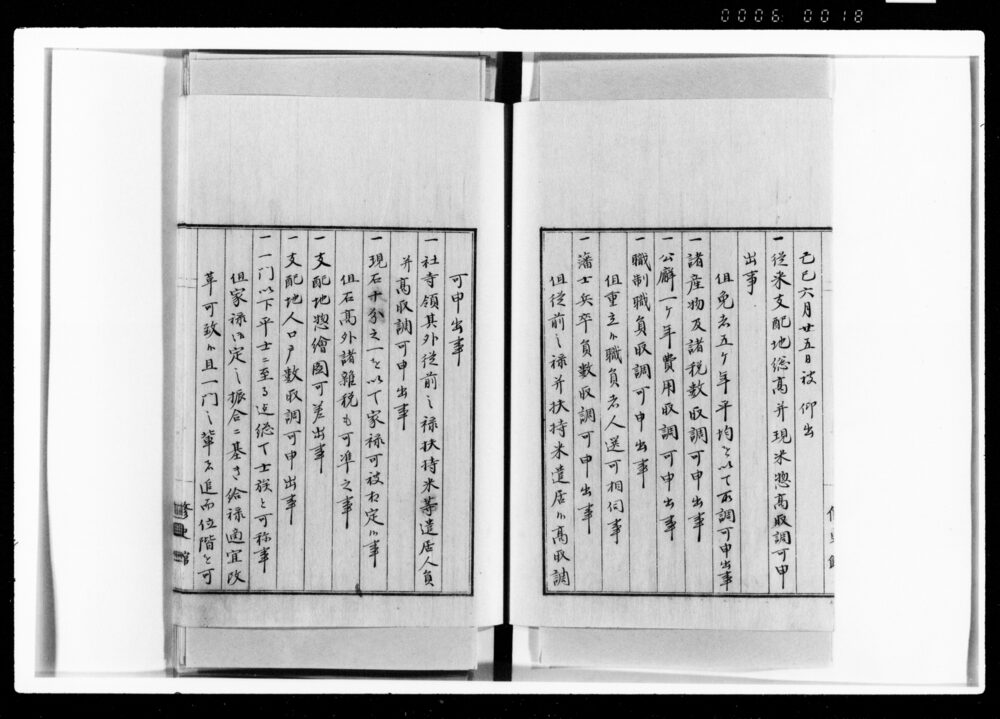 0006 0018
己巳六月廿五日被 仰出
一従来支配地総高并現米惣高取調可申
出事
但免者五ケ年平均ヲ以て取調可申出事
一諸産物及諸税数取調可申出事
一公廨一ケ年費用取調可申出事
一職制職員取調可申出事
但重立候職員者人選可相伺事
一藩士兵卒員数取調可申出事
但従前之禄并扶持米遣居候高取調
可申出事
一社寺領其外従前之禄扶持米等遣居人員
并高取調可申出事
一現石十分之一ヲ以て家禄可被相定候事
但石高外諸雑税も可準之事
一支配地惣絵図可差出事
一支配地人口戸数取調可申出事
一一門以下平士ニ至る迄総て士族と可称事
但家禄御定之振合ニ基き給禄適宜改
革可致候且一門之輩者追而位階ヲ可
修史館